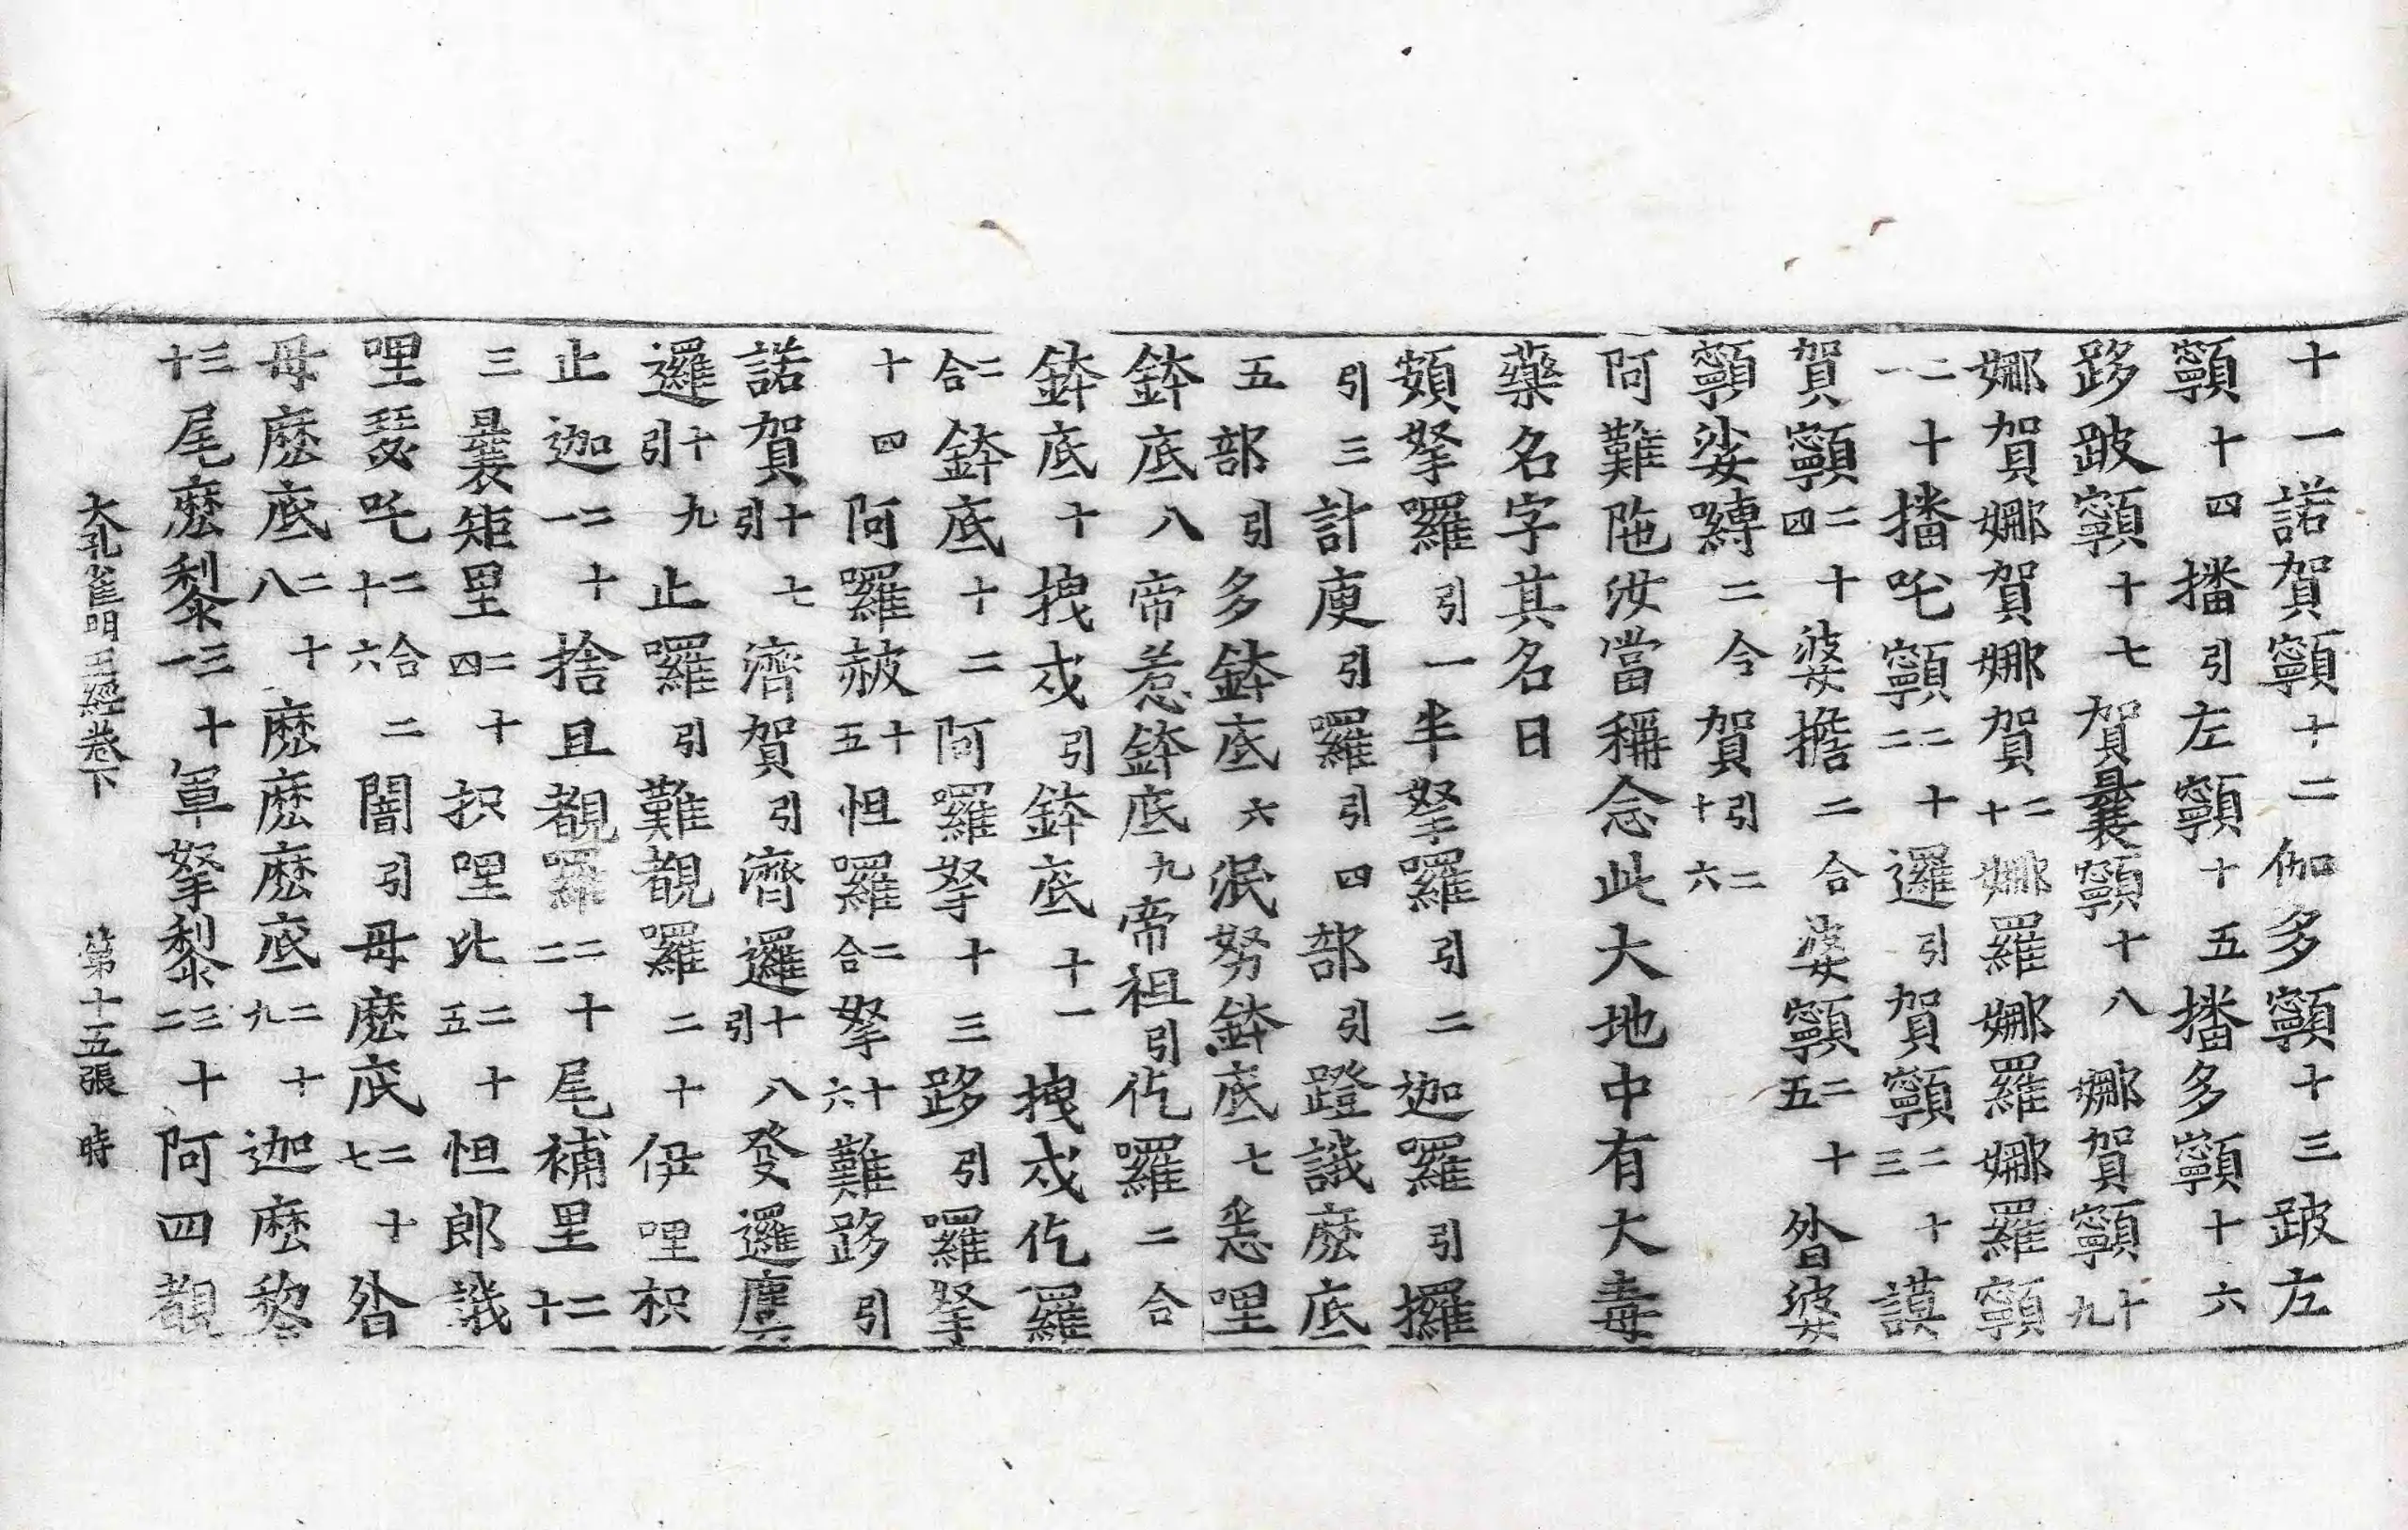 十一諾賀顐十二伽多顐十三跛左
顐十四播引左顐十五播多顐十六
跢跛顐十七賀曩顐十八娜賀顐十九
娜賀娜賀娜賀二十娜羅娜羅娜羅顐
二十一播吒顐二十二邏引賀顐二十三謨
賀顐二十四娑擔二合婆顐二十五昝婆
顐娑嚩二合賀引二十六
阿難陁汝當稱念此大地中有大毒
藥名字其名曰
頞拏囉引一半拏囉引二迦囉引攞
引三計庾引囉引四部引蹬誐麼底
五部引多鉢底六泯努鉢底七悉哩
鉢底八帝惹鉢底九帝祖引仡囉二合
鉢底十拽戍引鉢底十一拽戍仡羅
二合鉢底十二阿囉拏十三跢引囉拏
十四阿囉赦十五怛囉二合拏十六難跢引
諾賀引十七濟賀引濟邏引十八發邏麌
邏引十九止囉引難覩囉二十伊哩枳
止迦二十一捨且覩羅二十二尾補里二十
三曩矩里二十四枳哩比二十五怛郎誐
哩瑟吒二合二十六闇引母麼底二十七昝
母麼底二十八麼麼麼底二十九迦麼黎
三十尾麼黎三十一軍拏黎三十二阿四覩
大孔雀明王經卷下 第十五張 時